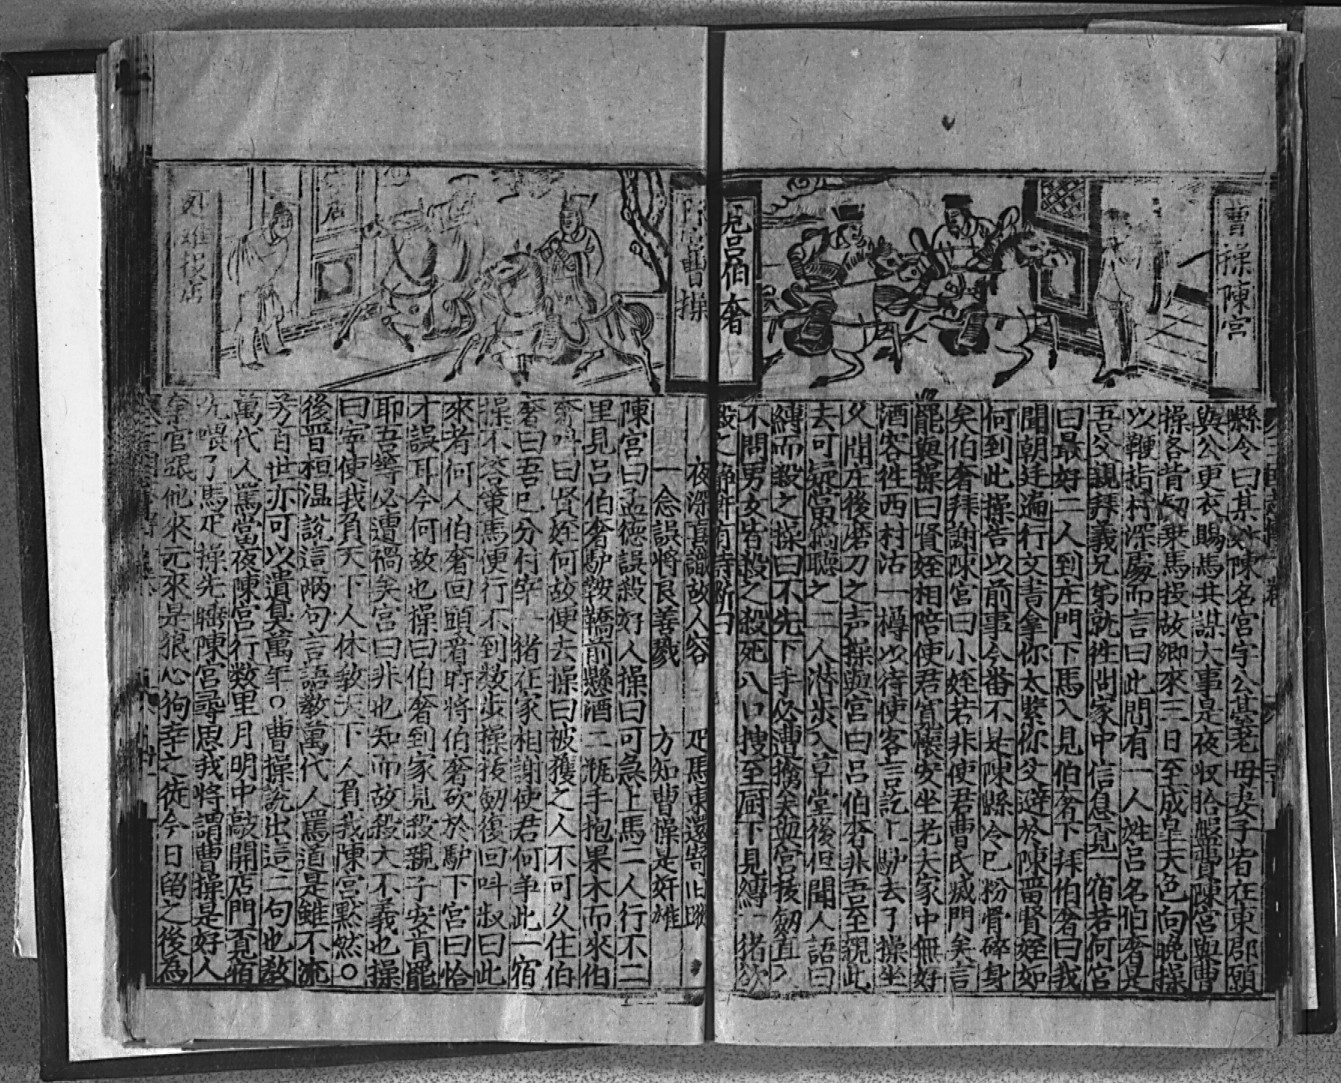 曹操陳宮
見呂伯奢
縣令曰某姓陳名宮字公臺老母妻子皆在東郡願
與公更衣賜馬共謀大事是夜收拾盤費陳宮與曹
操各背劔乗馬投故鄉來三日至成臯天色向晚操
以鞭指村深處而言曰此間有一人姓呂名伯奢是
吾父親拜義兄弟就往問家中信息覓一宿若何宮
曰最好二人到庄門下馬入見伯奢下拜伯奢曰我
聞朝廷遍行文書拿你太緊你父避於陳畱賢姪如
何到此操告以前事今番不是陳縣令已粉骨碎身
矣伯奢拜謝陳宮曰小姪若非使君曹氏滅門矣言
罷與操曰賢姪相陪使君寬懷安坐老夫家中無好
酒容徃西村沽一樽以待使客言訖上馿去了操坐
久聞庄後磨刀之声操與宮曰呂伯奢非吾至親此
去可疑當竊聽之二人潛步入草堂後但聞人語曰
縛而殺之操曰不先下手必遭擒矣與宮拔劔直入
不問男女皆殺之殺死八口搜至厨下見縛一猪欲
殺之 有詩断曰
夜深 故人容 疋馬東還 旧
一念誤將良善戮 方知曹操是奸雄
陳宮曰孟德誤殺好人操曰可急上馬二人行不二
里見呂伯奢馿鞍鞽前懸酒二瓶手抱果木而來伯
奢叫曰贤姪何故便去操曰被獲之人不可久住伯
奢曰吾已分付宰一猪在家相謝使君何争此一宿
操不答策馬便行不到数步操拔劔復回叫叔曰此
來者何人伯奢回頭看時將伯奢砍於馿下宮曰恰
才誤耳今何故也操曰伯奢到家見殺親子安肯罷
耶吾等必遭禍矣宮曰非也知而故殺大不義也操
曰寧使我負天下人休教天下人負我陳宮黙然○
後晉桓溫說這兩句言語教萬代人罵道是雖不流
芳百世亦可以遺臭萬年○曹操說出這二句也教
萬代人罵當夜陳宮行数里月明中敲開店門覓宿
先喂了馬疋操先睡陳宮尋思我將謂曹操是好人
拿官跟他來元來是狼心狗幸之徒今日畱之後為